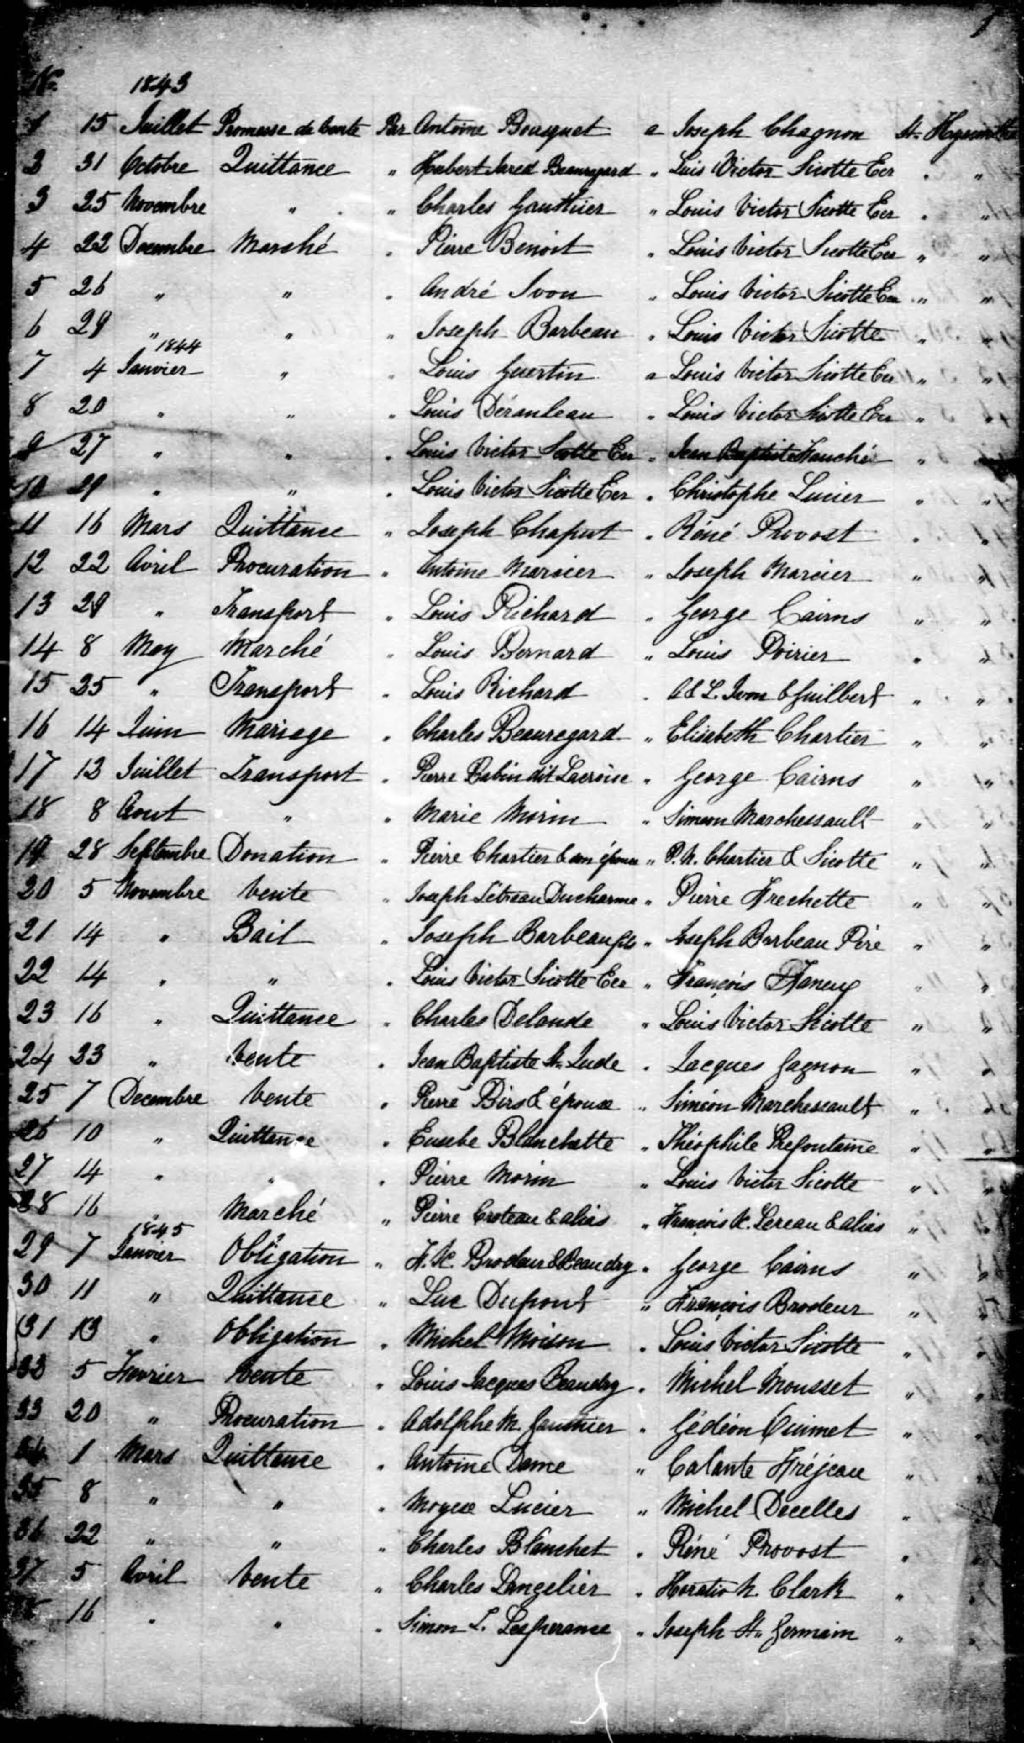 1
No 1843
1 15 Juillet Promesse de Vente Par Antoine Bousquet a Joseph Chagnon St. Hyacinthe
2 31 Octobre Quittance " Hubert Jared Beauregard " Luis Victor Sicotte Ecr " "
3 25 Novembre " " Charles Gauthier " Louis Victor Sicotte Ecr " "
4 22 Decembre Marché " Pierre Benoit " Louis Victor Sicotte Ecr " "
5 26 " " " André Ivon " Louis Victor Sicotte Ecr " "
6 29 " " " Joseph Barbeau " Louis Victor Sicotte " "
1844
7 4 Janvier " " Louis Guertin a Louis Victor Sicotte Ecr " "
8 20 " " " Louis Déranleau " Louis Victor Sicotte Ecr " "
9 27 " " " Louis Victor Sicotte Ecr " Jean Baptiste " "
10 29 " " " Louis Victor Sicotte Ecr " Christophe Lucier " "
11 16 Mars Quittance " Joseph Chaput " Réné Provost " "
12 22 Avril Procuration " Antoine Marcier " Joseph Marcier " "
13 29 " Transport " Louis Richard " George Cairns " "
14 8 May Marché " Louis Bernard " Louis Poirier " "
15 25 " Transport " Louis Richard " A & L. Ivon & Guilbert " "
16 14 Juin Mariage " Charles Beauregard " Elisabeth Chartier " "
17 13 Juillet Transport " Pierre Babin dit Lacroise " George Cairns " "
18 8 Aout " " Marie Morin " Simeon Marchessault " "
19 28 Septembre Donation " Pierre Chartier & son épouse " P. N. Chartier & Sicotte " "
20 5 Novembre Vente " Joseph Ducharme " Pierre Frechette " "
21 14 " Bail " Joseph Barbeau fls " Joseph Barbeau Père " "
22 14 " " " Louis Victor Sicotte Ecr " François " "
23 16 " Quittance " Charles Delande " Louis Victor Sicotte " "
24 23 " Vente " Jean Baptiste St. Jude " Jacques Gagnon " "
25 7 Decembre Vente " Pierre Birs & épouse " Siméon Marchessault " "
26 10 " Quittance " Eusebe Blanchette " Théophile Prefontaine " "
27 14 " " " Pierre Morin " Louis Victor Sicotte " "
28 16 " Marché " Pierre Croteau & alias " François X. Lereau & alias " "
1845
29 7 Janvier Obligation " F. X. Brodeur & Beaudry " George Cairns " "
30 11 " Quittance " Luc Dupont " François Brodeur " "
31 13 " Obligation " Michel Moison " Louis Victor Sicotte " "
32 5 Fevrier Vente " Louis Jacques Beaudry " Michel Mousset " "
33 20 " Procuration " Adolphe M. Gauthier " Gédéon Ouimet " "
34 1 Mars Quittance " Antoine Dame " Calante Fréjeau "
35 8 " " " Moyse Lucier " Michel Decelles "
36 22 " " " Charles Blanchet " Réné Provost "
37 5 Avril Vente " Charles Langelier " Horatio N. Clark "
16 " " " Simon L. Lesperance " Joseph St. Germain "